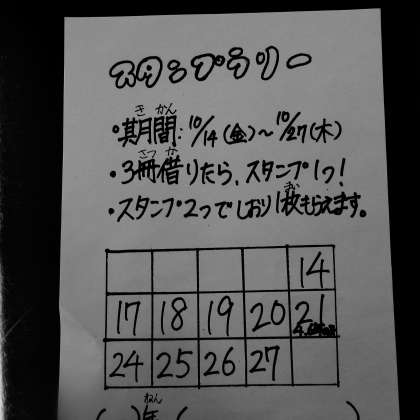 スタンプラリー
・期間：10/14（金）～10/27（木）
・3冊借りたら、スタンプ1つ！
・スタンプ2つでしおり1枚もらえます。
14
17 18 19 20 21
24 25 26 27
（ ）年（ ）